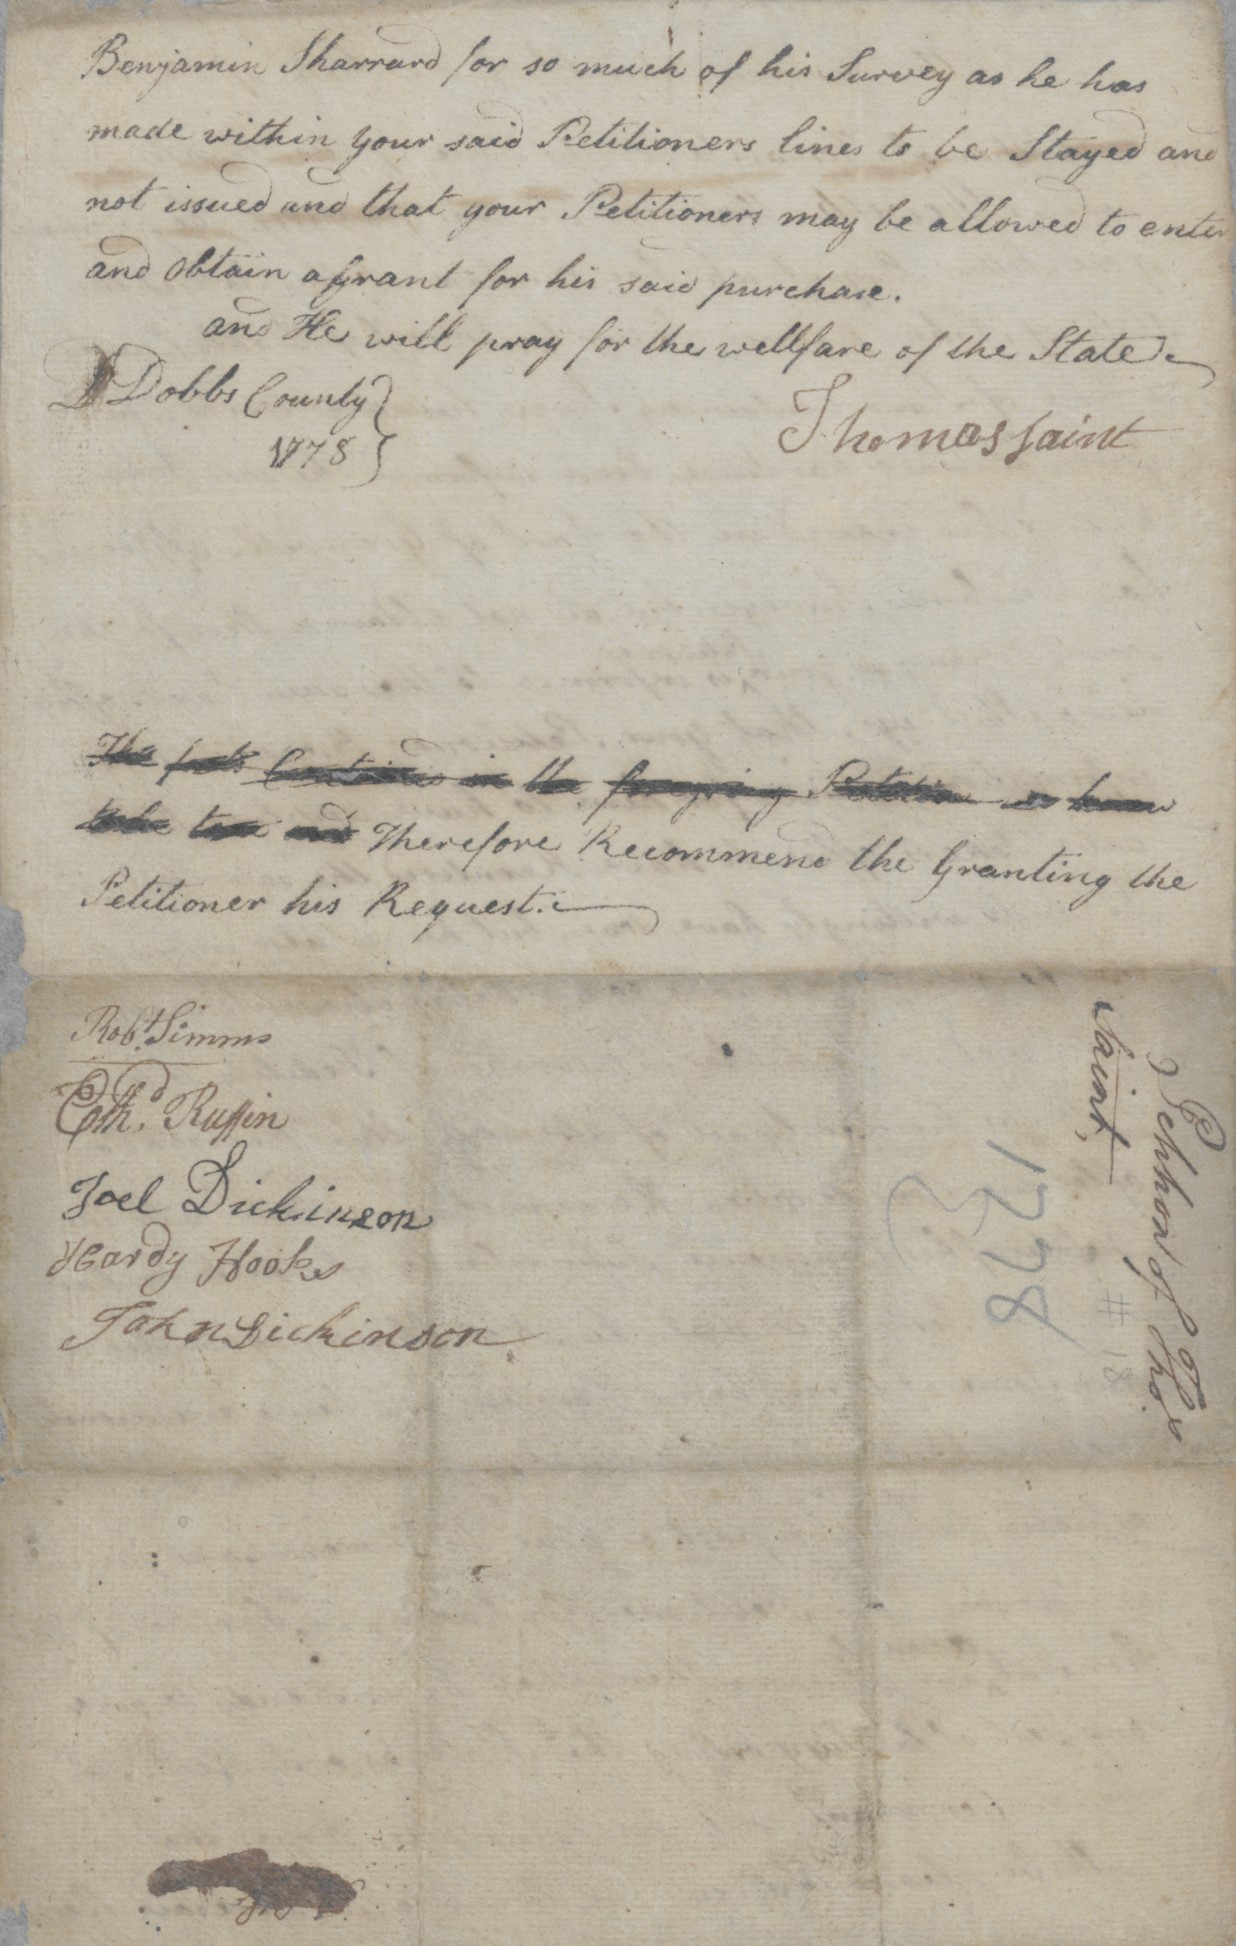 Benjamin Sharrard for so much of his Survey as he has
made within your said Petitioners lines to be Stayed and
not issued and that your Petitioners may be allowed to enter
and Obtain a Grant for his said purchase.
and He will pray for the wellfare of the State
Dobbs County
1778
Thomas Saint
The facts Contained in the foregoing Petition
to be true and Therefore Recommend the Granting the
Petitioner his Request.
Robt. Simms
Ethd. Ruffin
Joel Dickinson
Hardy Hooks
John Dickinson
Petition of Thos.
Saint
# 18
1778